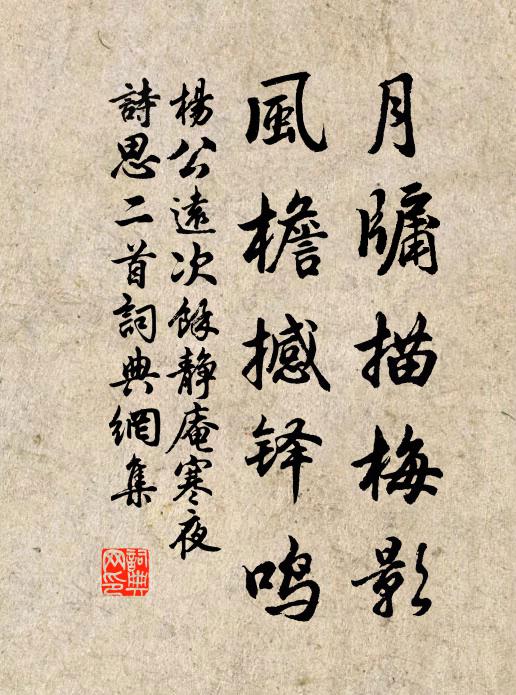 月牗描梅影
風檐撼铎鸣
楊公遠次餘静庵寒夜
詩思二首詞典網集
詞典
网印